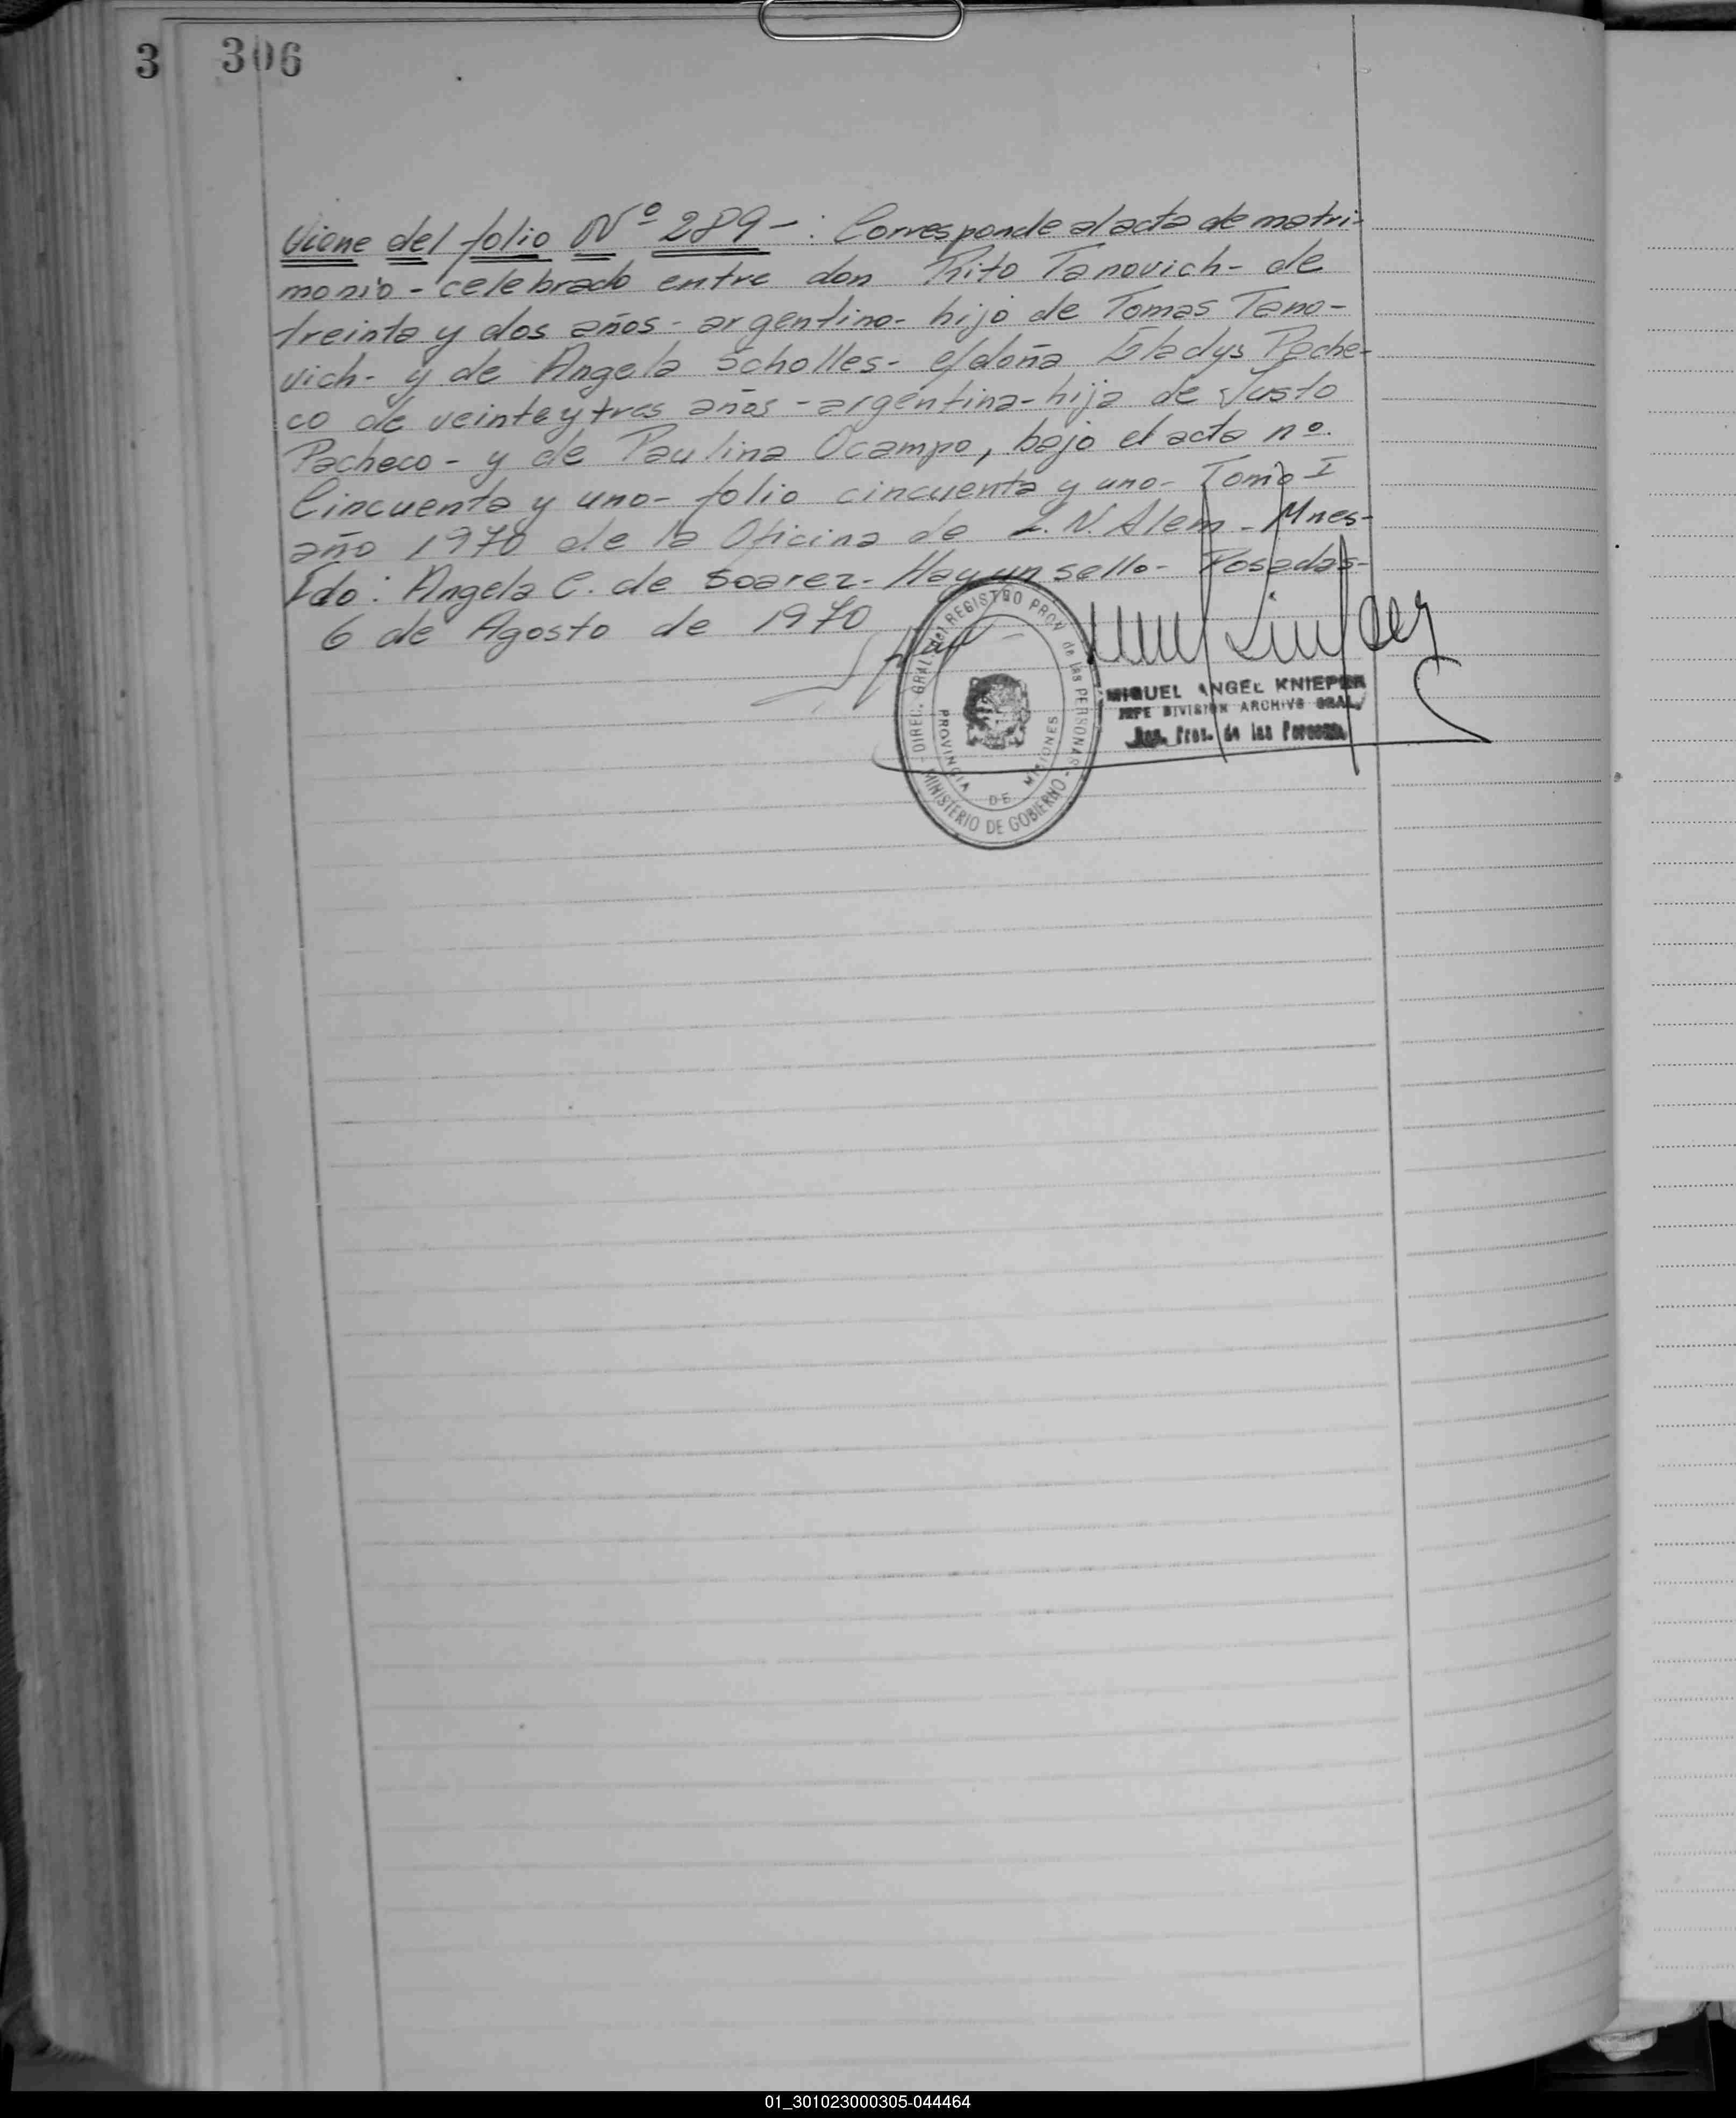 3 306
Viene del folio Nº 289 - : Corresponde al acta de matri-
monio - celebrado entre don Rito Tanovich - de
treinta y dos años - argentino - hijo de Tomas Tano-
vich - y de Angela Scholles - y doña Gladys Pache-
co de veinte y tres años - argentina - hija de Justo
Pacheco - y de Paulina Ocampo, bajo el acta nº.
Cincuenta y uno - folio cincuenta y uno - Tomo I
año 1970 de la Oficina de L. N. Alem - Mnes -
Fdo: Angela C. de Soarez - Hay un sello - Posadas -
6 de Agosto de 1970
DIREC. GRAL. del REGISTRO PROV. de las PERSONAS
PROVINCIA DE MISIONES
MINISTERIO DE GOBIERNO
MIGUEL ANGEL KNIEPER
JEFE DIVISION ARCHIVO GRAL.
Reg. Prov. de las Personas
01_301023000305-044464